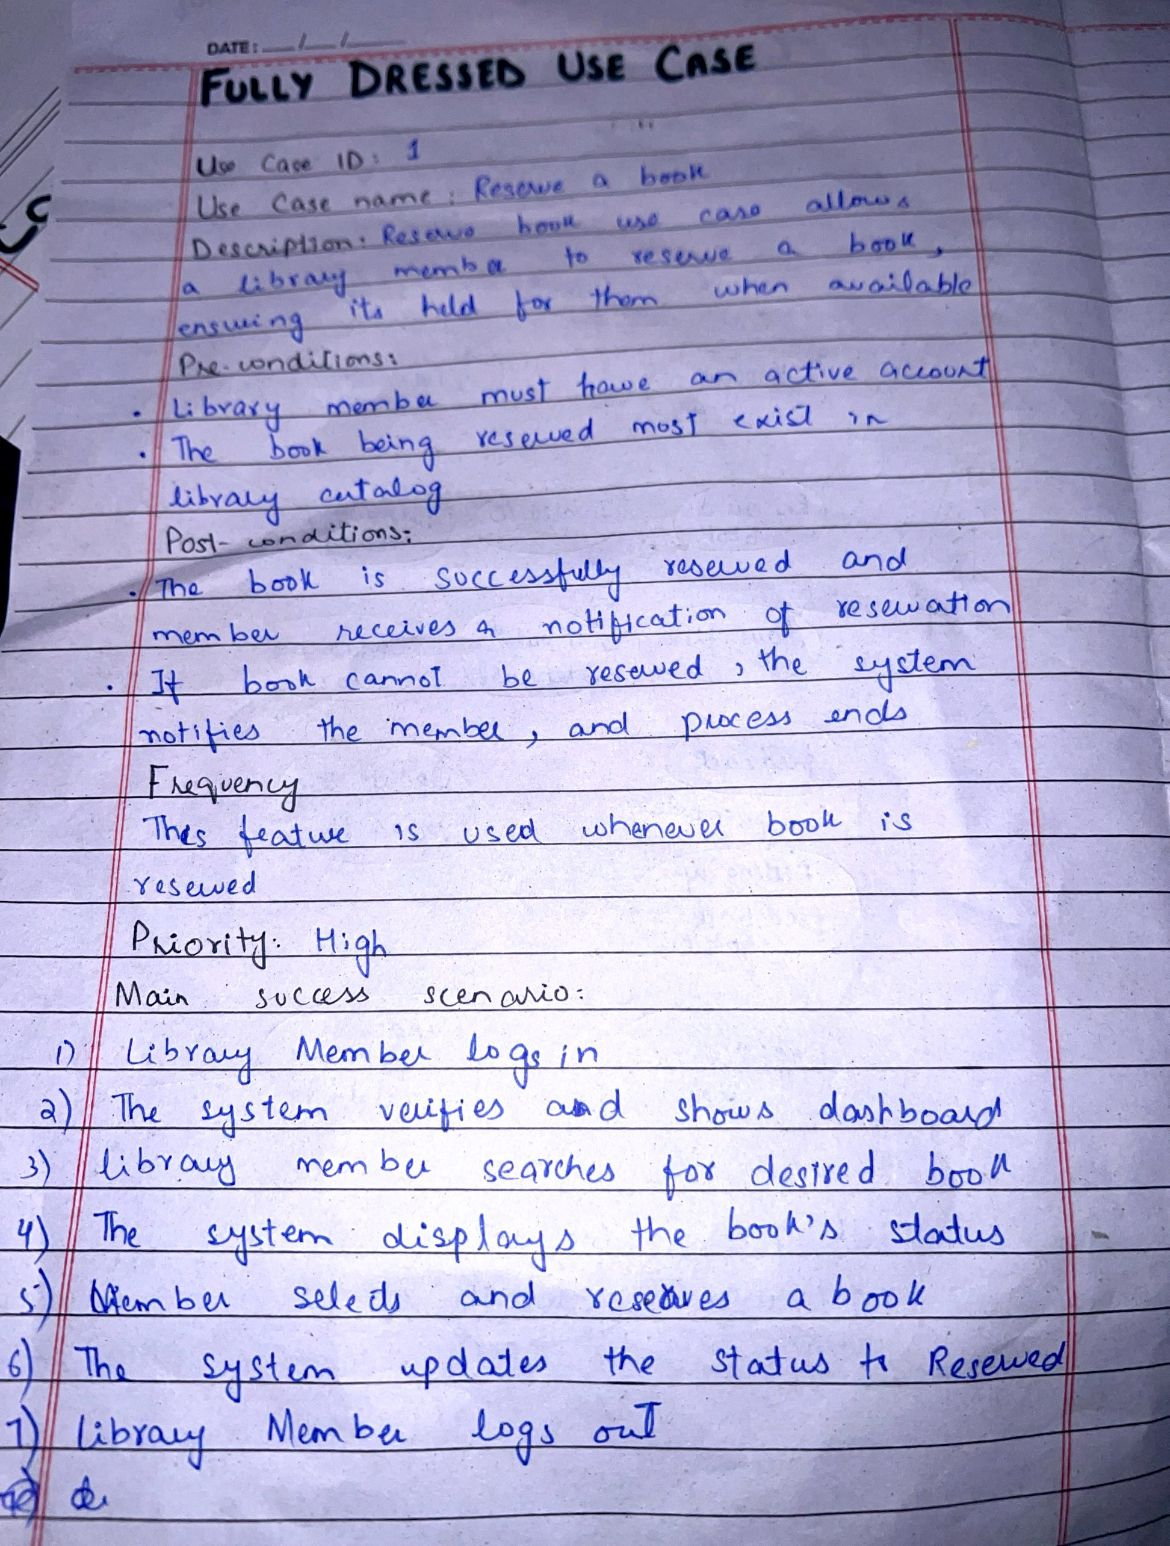 DATE: __/__/__
FULLY DRESSED USE CASE
Use Case ID: 1
Use Case name: Reserve a book
Description: Reserve book use case allows
a library member to reserve a book,
ensuring its held for them when available
Pre-conditions:
• Library member must have an active account
• The book being reserved most exist in
library catalog
Post-conditions:
• The book is successfully reserved and
member receives a notification of reservation
• If book cannot be reserved, the system
notifies the member, and process ends
Frequency
This feature is used whenever book is
reserved
Priority: High
Main success scenario:
1) Library Member logs in
2) The system verifies and shows dashboard
3) library member searches for desired book
4) The system displays the book's status
5) Member selects and reserves a book
6) The system updates the status to Reserved
7) Library Member logs out